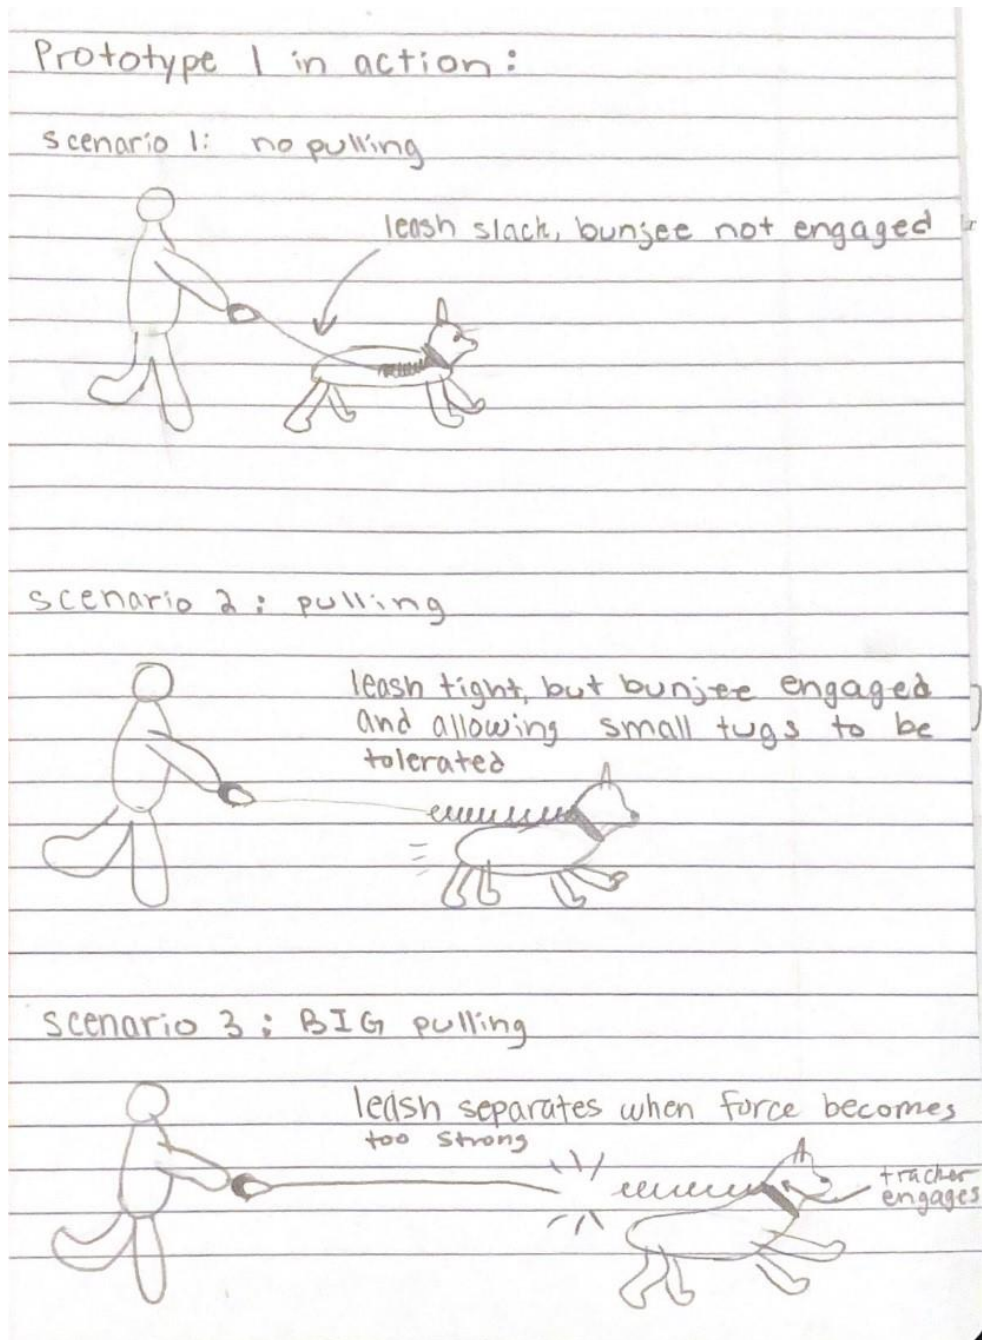 Prototype 1 in action:
scenario 1: no pulling
leash slack, bunjee not engaged
scenario 2: pulling
leash tight, but bunjee engaged
and allowing small tugs to be
tolerated
scenario 3: BIG pulling
leash separates when force becomes
too strong
tracker
engages